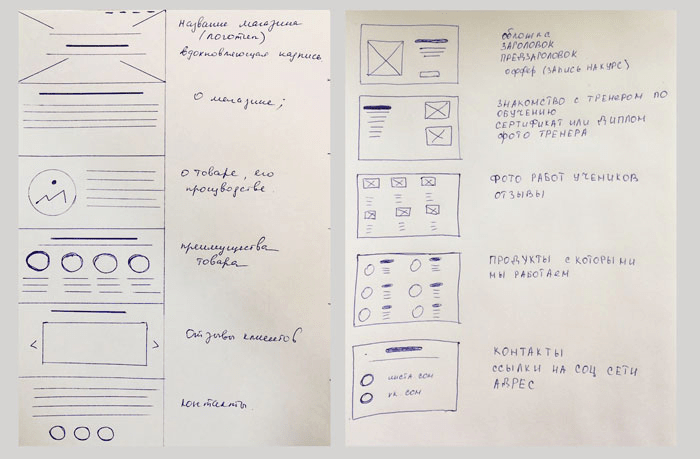 название магазина
(логотип)
вдохновляющая надпись
о магазине;
о товаре, его
производстве.
преимущества
товара
Отзывы клиентов
контакты.
обложка
ЗАГОЛОВОК
ПРЕДЗАГОЛОВОК
оффер (ЗАПИСЬ НА КУРС)
ЗНАКОМСТВО С ТРЕНЕРОМ ПО
ОБУЧЕНИЮ
СЕРТИФИКАТ ИЛИ ДИПЛОМ
ФОТО ТРЕНЕРА
ФОТО РАБОТ УЧЕНИКОВ
ОТЗЫВЫ
ПРОДУКТЫ С КОТОРЫМИ
МЫ РАБОТАЕМ
инста. com
vk. com
КОНТАКТЫ
ССЫЛКИ НА СОЦ СЕТИ
АДРЕС